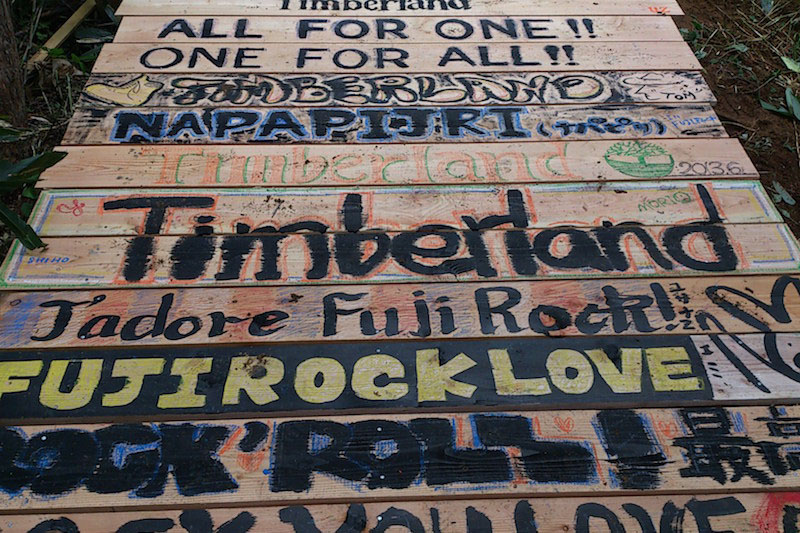 Timberland
ALL FOR ONE!!
ONE FOR ALL!!
TIMBERLAND
NAPAPIJRI (ナパピリ)
Timberland 2013.6.
Timberland
SHIHO
MORIO
J'adore Fuji Rock!
FUJI ROCK LOVE
ROCK'ROLL! 最高
YOU LOVE